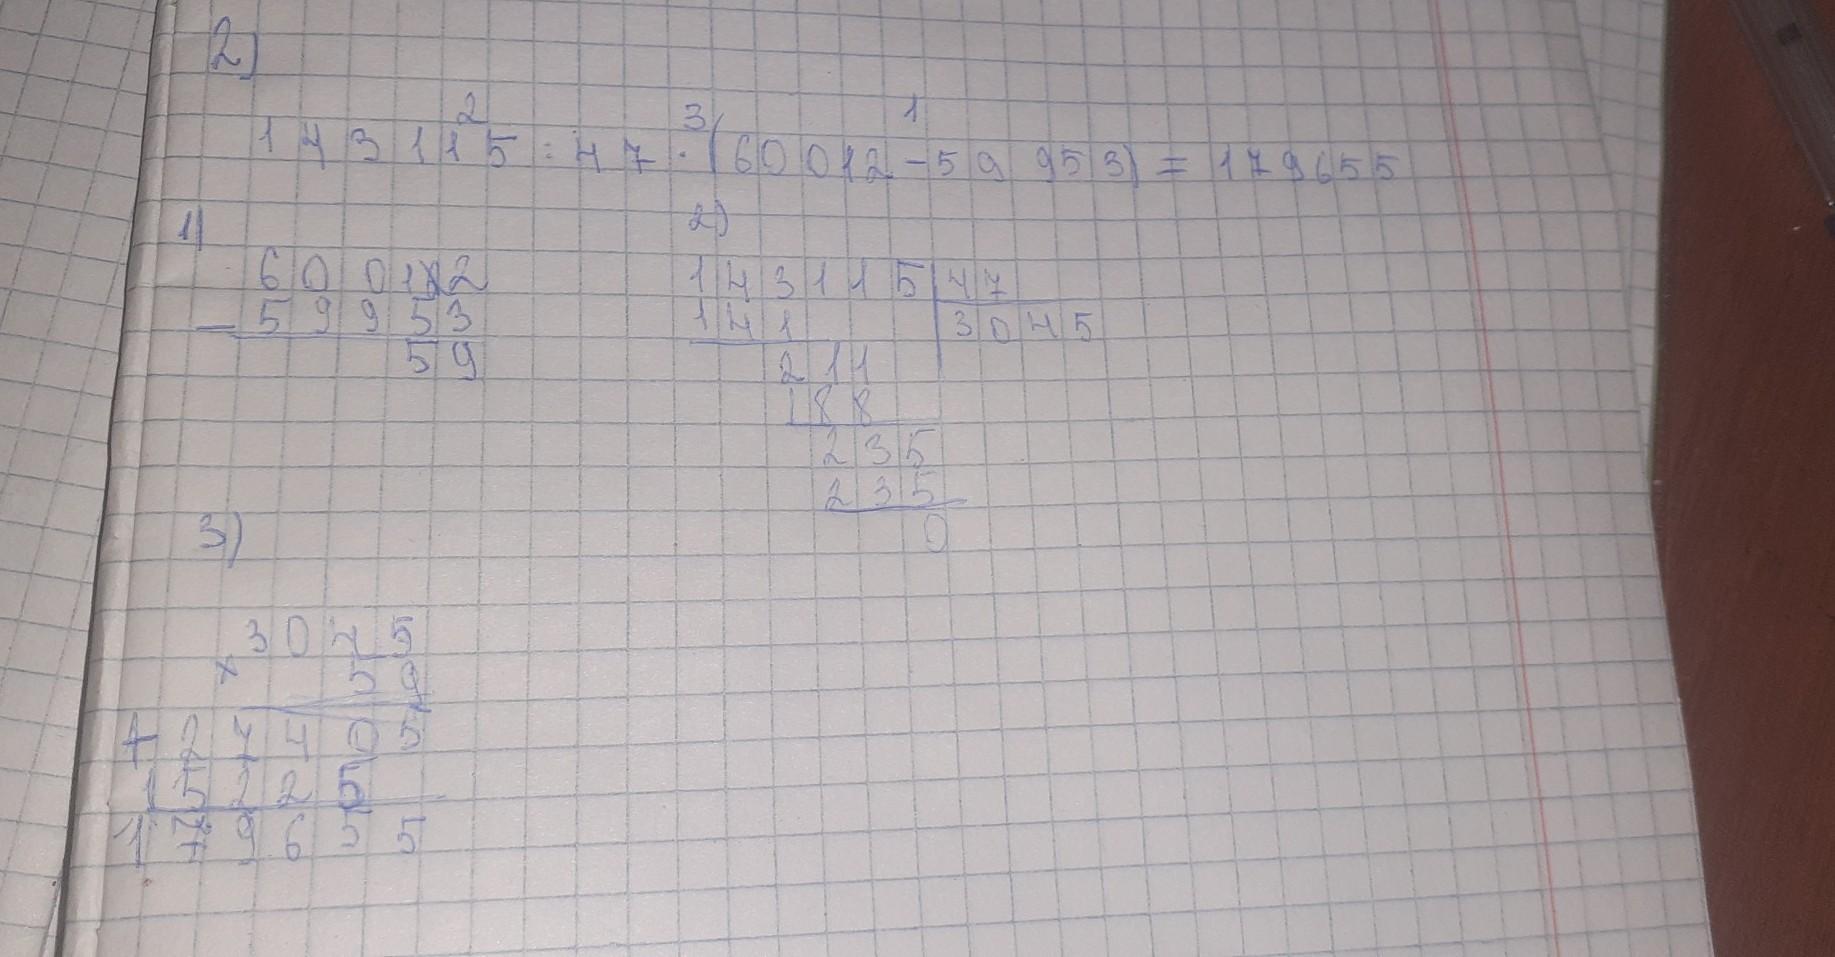 2)
2 3 1
143115 : 47 · (60012 - 59 953) = 179655
1) 2)
60012 143115 47
- 59953 141 3045
59 211
188
235
235
0
3)
3045
× 59
+ 27405
15225
179655